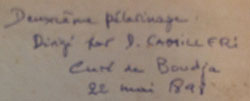 Deuxième pélerinage :
Dirigé par D. CAMILLERI
Curé de Boudja
22 mai 1898